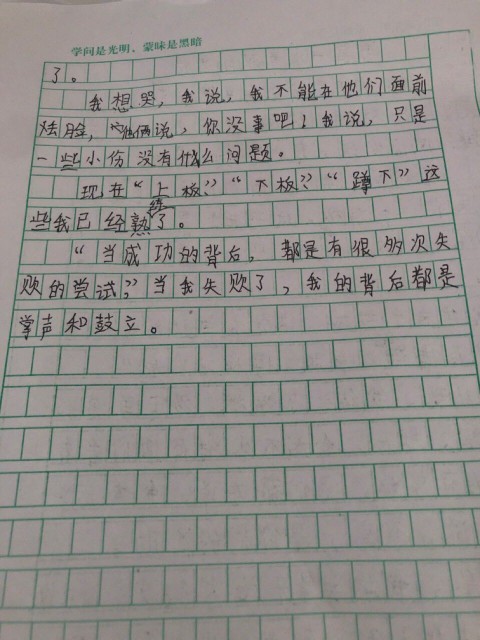 学问是光明、蒙昧是黑暗
了。
我想哭，我说，我不能在他们面前
脸，他俩说，你没事吧！我说，只是
一些小伤没有什么问题。
现在“上板”“下板”“蹲下”这
些我已经熟练了。
“当成功的背后，都是有很多次失
败的尝试”当我失败了，我的背后都是
掌声和鼓立。